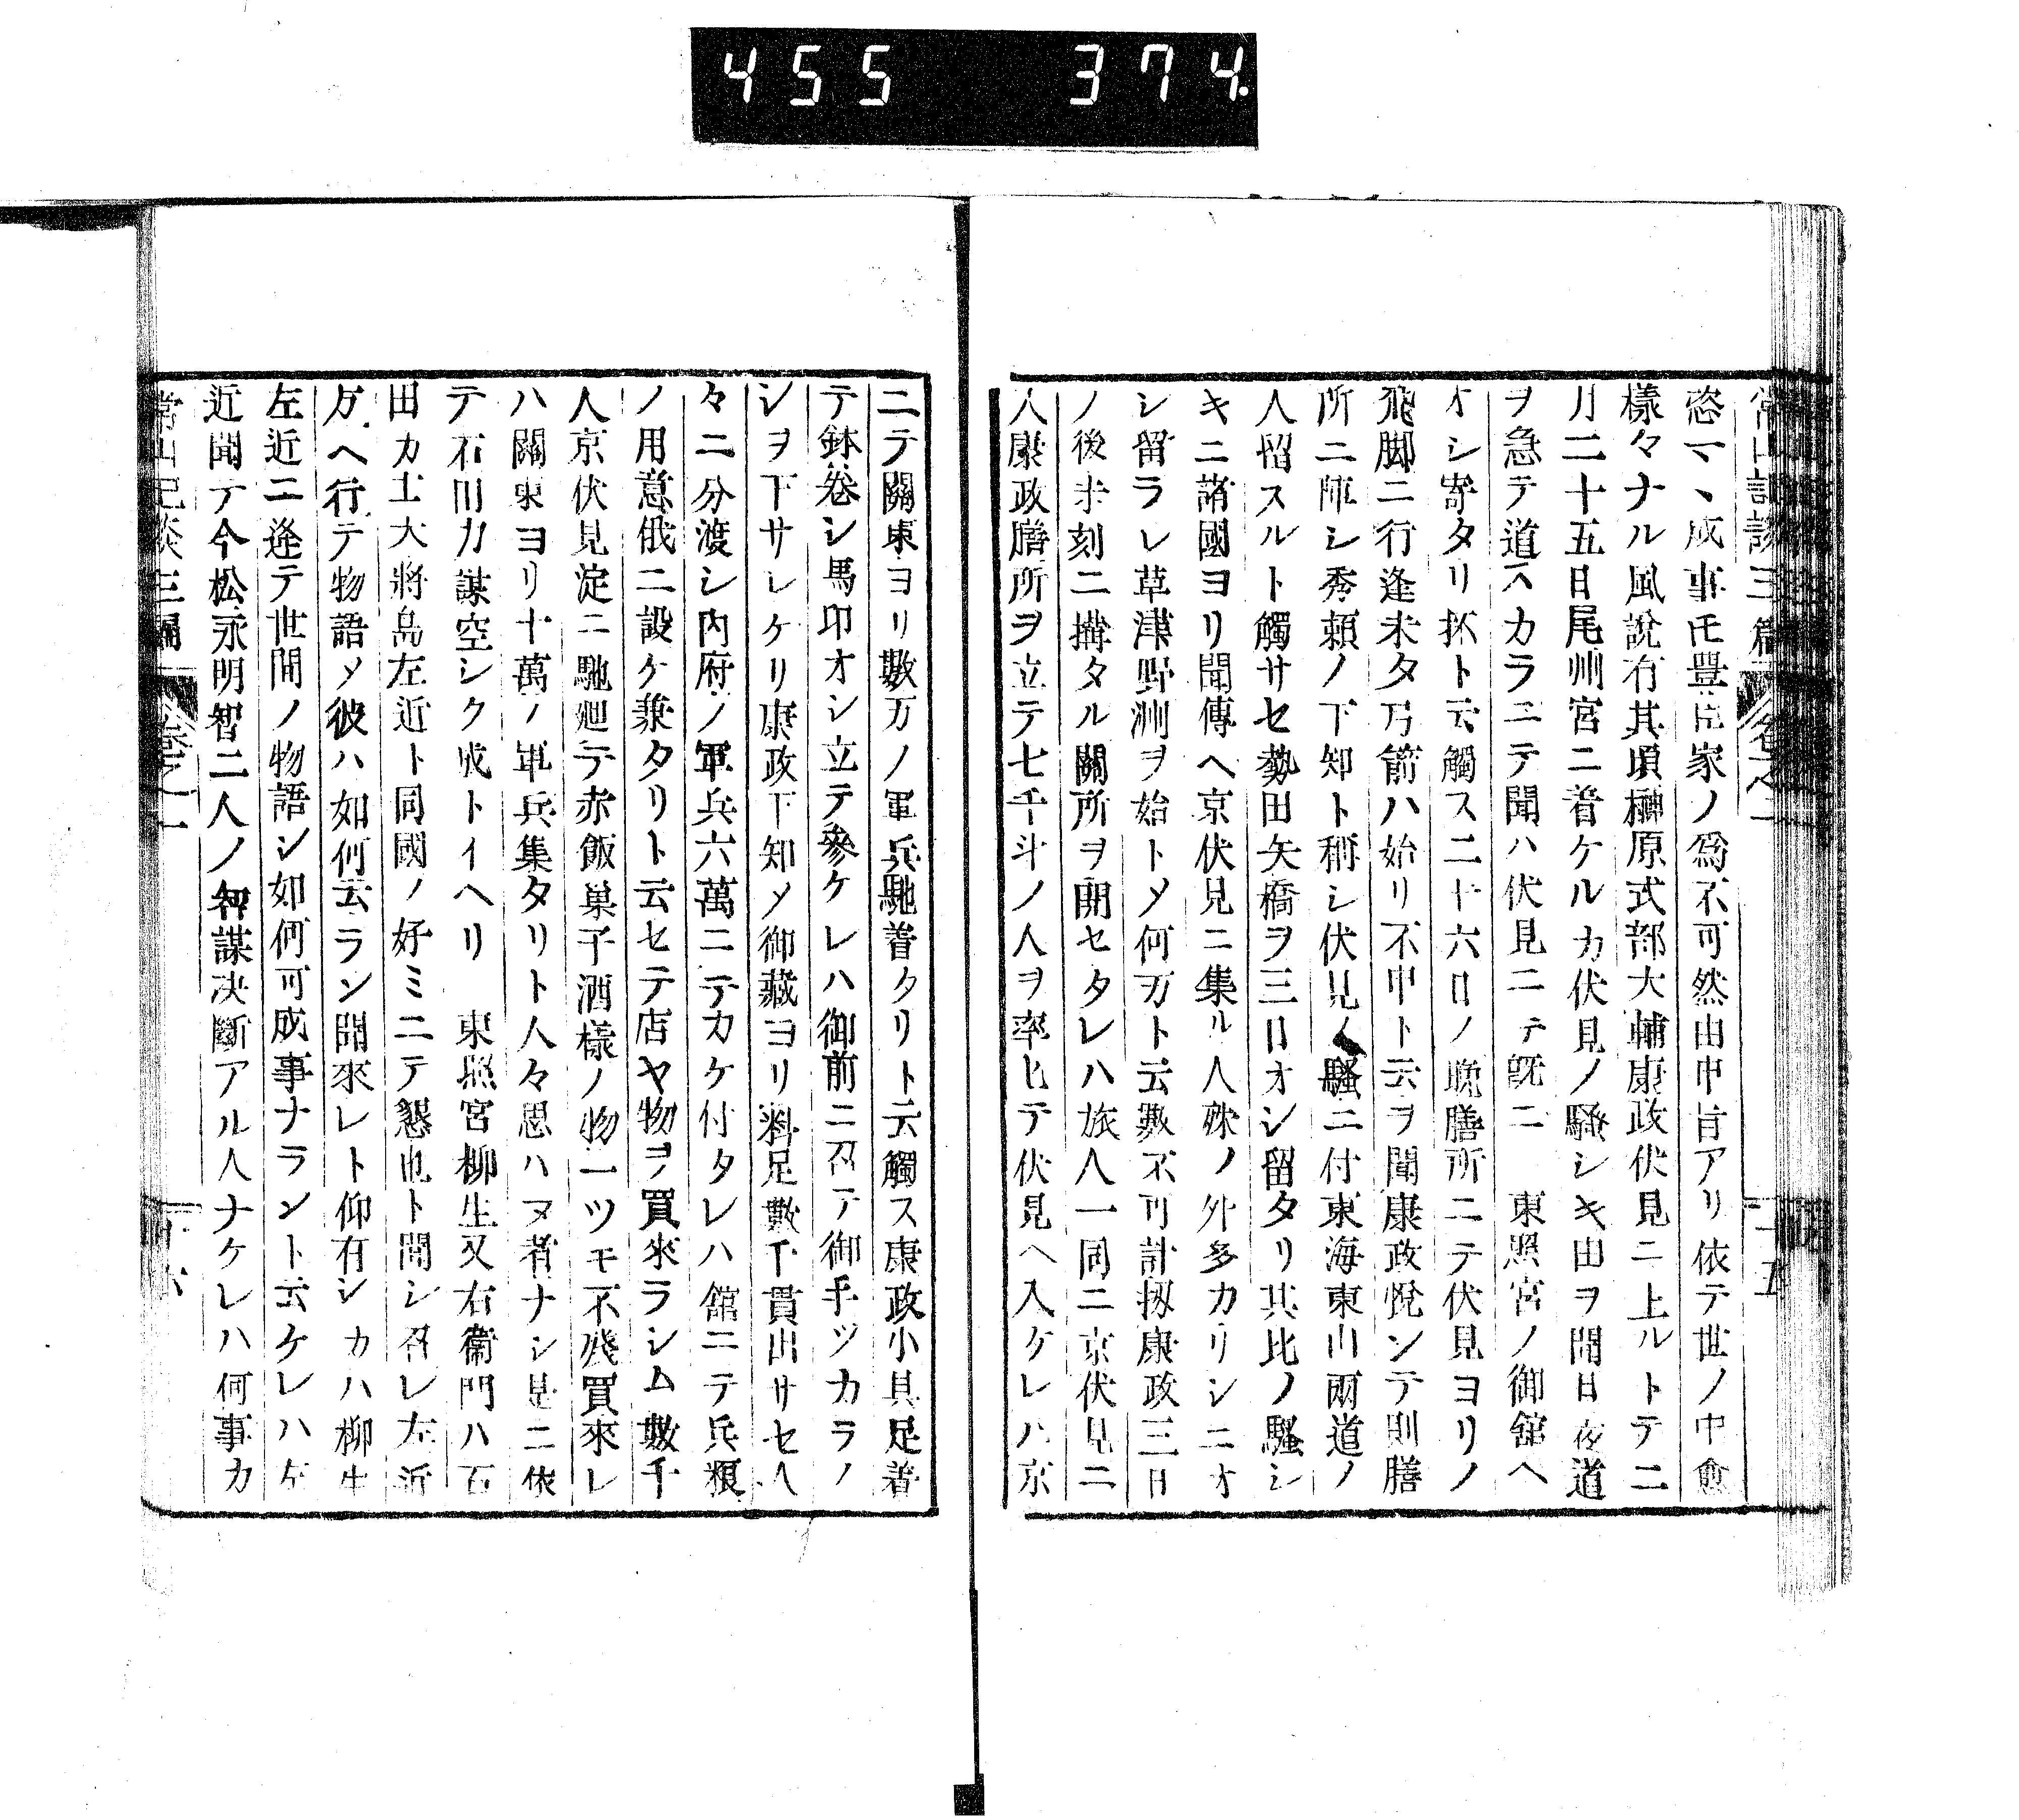 455 374.
常山記談三篇 卷之一 十五
恣マヽ成事㐧豊臣家ノ爲不可然由申旨アリ依テ世ノ中愈
樣々ナル風說有其頃榊原式部大輔康政伏見ニ上ルトテ二
月二十五日尾州宮ニ着ケルカ伏見ノ騷シキ由ヲ聞日夜道
ヲ急テ道ハカラニテ聞ハ伏見ニテ既ニ 東照宮ノ御舘ヘ
オシ寄タリ抔ト云觸ス二十六日ノ晩膳所ニテ伏見ヨリノ
飛脚ニ行逢未タ弓箭ハ始リ不申ト云ヲ聞康政悅ンテ則膳
所ニ陣シ秀賴ノ下知ト稱シ伏見ノ騷ニ付東海東山兩道ノ
人留スルト觸サセ勢田矢橋ヲ三日オシ留タリ其比ノ騷シ
キニ諸國ヨリ聞傳ヘ京伏見ニ集ル人殊ノ外多カリシニオ
シ留ラレ草津野洲ヲ始トメ何万ト云數不可計扨康政三日
ノ後未刻ニ搆タル關所ヲ開セタレハ旅人一同ニ京伏見ニ
入康政膳所ヲ立テ七千斗ノ人ヲ率ヒテ伏見ヘ入ケレハ京
ニテ關東ヨリ數万ノ軍兵馳着タリト云觸ス康政小具足着
テ鉢卷シ馬印オシ立テ參ケレハ御前ニ召テ御手ツカラノ
シヲ下サレケリ康政下知メ御藏ヨリ料足數千貫出サセ人
々ニ分渡シ内府ノ軍兵六萬ニテカケ付タレハ舘ニテ兵粮
ノ用意俄ニ設ケ兼タリト云セテ店ヤ物ヲ買來ラシム數千
人京伏見淀ニ馳廻テ赤飯菓子酒樣ノ物一ツモ不殘買來レ
ハ關東ヨリ十萬ノ軍兵集タリト人々思ハヌ者ナシ是ニ依
テ石田カ謀空シク成トイヘリ 東照宮柳生又右衞門ハ石
田カ士大將島左近ト同國ノ好ミニテ懇也ト聞シ召レ左近
方ヘ行テ物語メ彼ハ如何云ラン聞來レト仰有シカハ柳生
左近ニ逢テ世間ノ物語シ如何可成事ナラント云ケレハ左
近聞テ今松永明智二人ノ智謀決斷アル人ナケレハ何事カ
常山記談三編 卷之一 十六